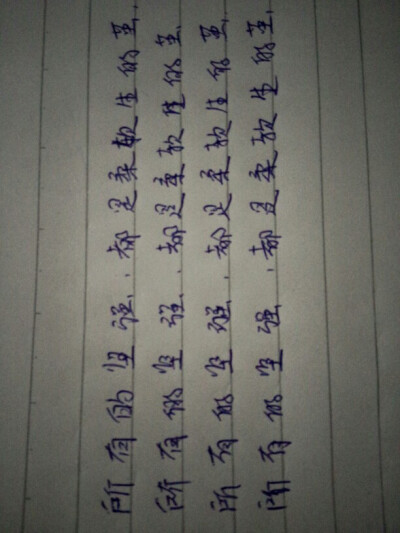 所有的坚强，都是柔软生的茧.
所有的坚强，都是柔软生的茧.
所有的坚强，都是柔软生的茧.
所有的坚强，都是柔软生的茧.